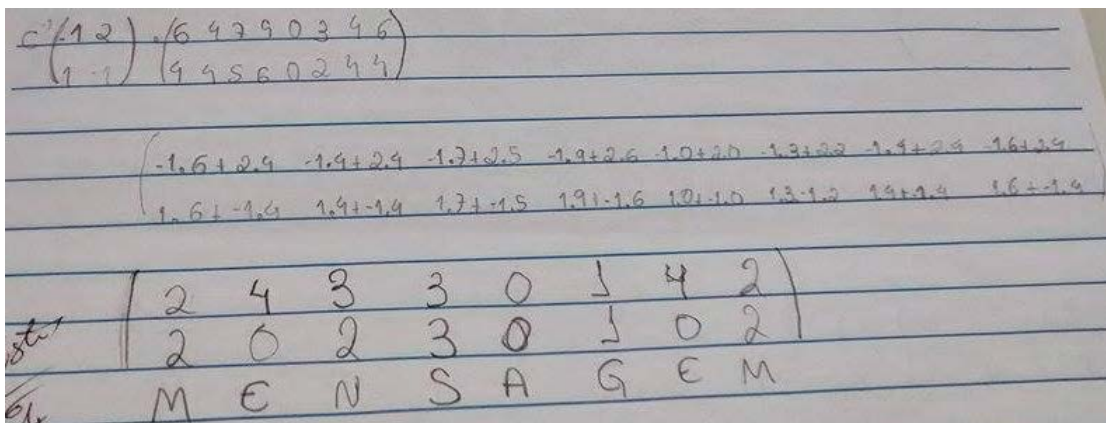 C⁻¹ (-1 2) . (6 4 7 9 0 3 4 6)
(1 -1) (4 4 5 6 0 2 4 4)
-1.6+2.4 -1.4+2.4 -1.7+2.5 -1.9+2.6 -1.0+2.0 -1.3+2.2 -1.4+2.4 -1.6+2.4
1.6+-1.4 1.4+-1.4 1.7+-1.5 1.9+-1.6 1.0+-1.0 1.3-1.2 1.4+-1.4 1.6+-1.4
2 4 3 3 0 1 4 2
2 0 2 3 0 1 0 2
M E N S A G E M